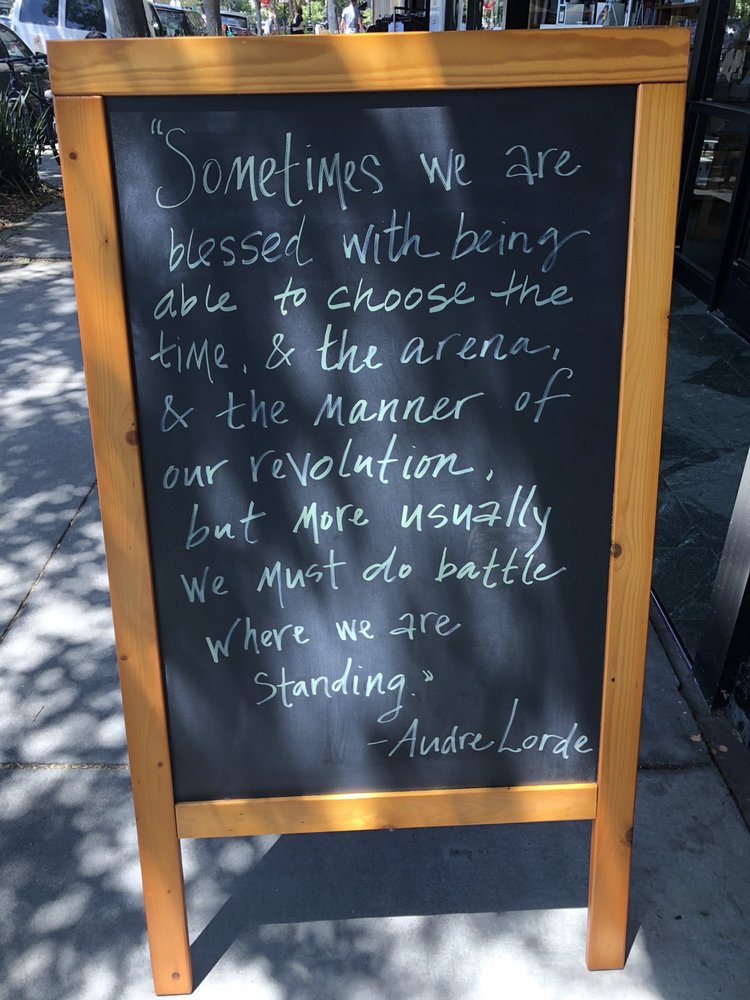 "Sometimes we are
blessed with being
able to choose the
time, & the arena,
& the manner of
our revolution,
but more usually
we must do battle
where we are
standing."
-Audre Lorde